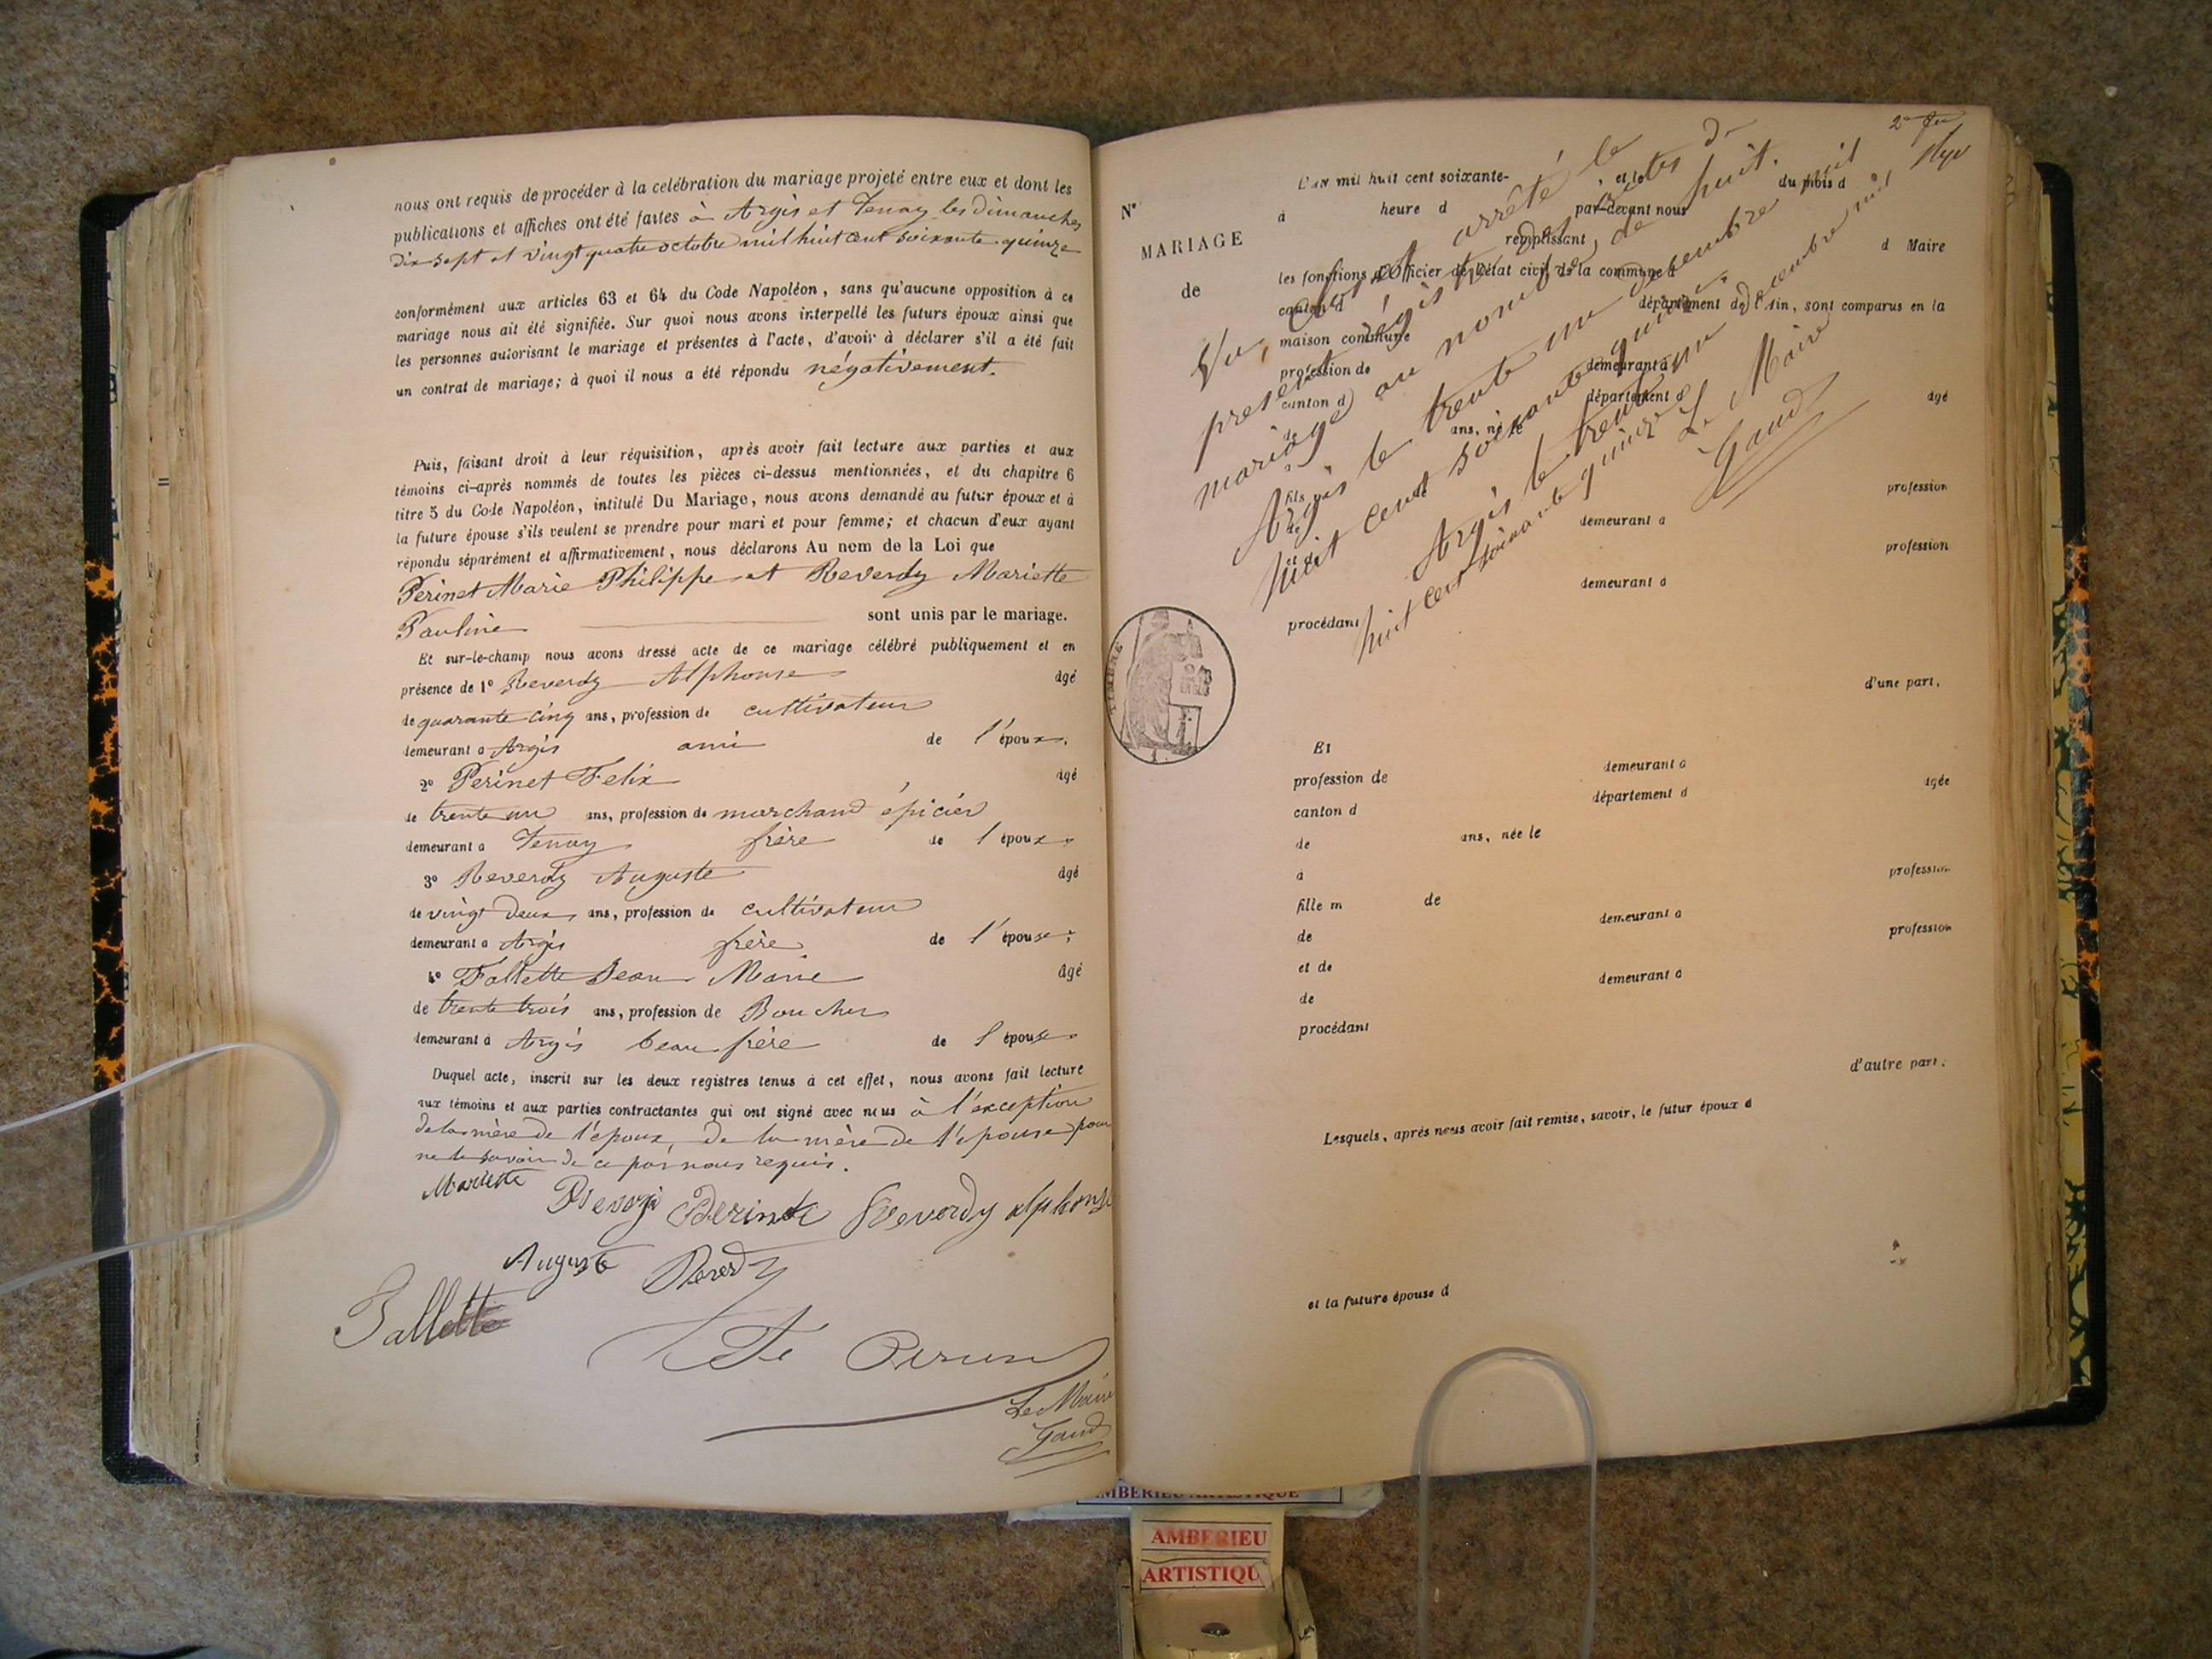 nous ont requis de procéder à la celébration du mariage projeté entre eux et dont les
publications et affiches ont été faites à Argis et Tenay les dimanches
dix sept et vingt quatre octobre mil huit cent soixante quinze
conformément aux articles 63 et 64 du Code Napoléon, sans qu'aucune opposition à ce
mariage nous ait été signifiée. Sur quoi nous avons interpellé les futurs époux ainsi que
les personnes autorisant le mariage et présentes à l'acte, d'avoir à déclarer s'il a été fait
un contrat de mariage; à quoi il nous a été répondu négativement.
Puis, faisant droit à leur réquisition, après avoir fait lecture aux parties et aux
témoins ci-après nommés de toutes les pièces ci-dessus mentionnées, et du chapitre 6
titre 5 du Code Napoléon, intitulé Du Mariage, nous avons demandé au futur époux et à
la future épouse s'ils veulent se prendre pour mari et pour femme; et chacun d'eux ayant
répondu séparément et affirmativement, nous déclarons Au nom de la Loi que
Perinet Marie Philippe et Reverdy Mariette
Pauline sont unis par le mariage.
Et sur-le-champ nous avons dressé acte de ce mariage célébré publiquement et en
présence de 1° Reverdy Alphonse âgé
de quarante cinq ans, profession de cultivateur
demeurant a Argis ami de l'époux.
2° Perinet Felix âgé
de trente un ans, profession de marchand épicier
demeurant a Tenay frère de l époux.
3° Reverdy Auguste âgé
de vingt deux ans, profession de cultivateur
demeurant a Argis frère de l'épouse;
4° Fallette Jean Marie âgé
de trente trois ans, profession de Boucher
demeurant à Argis beau frère de l épouse
Duquel acte, inscrit sur les deux registres tenus à cet effet, nous avons fait lecture
aux témoins et aux parties contractantes qui ont signé avec nous à l'exception
de la mère de l'époux, de la mère de l'épouse pour
ne le savoir de ce par nous requis.
Mariette Reverdi Perinet Reverdy alphonse
Auguste Reverdy
Fallette
Fe Perinet
Le Maire
Gaud
N°
MARIAGE
de
TIMBRE
L'an mil huit cent soixante- , et le du mois d
à heure d par-devant nous
remplissant d Maire
les fonctions d'Officier de l'état civil de la commune d
canton d département de l'Ain, sont comparus en la
maison commune
profession de demeurant à
canton d département d âgé
de ans, né le
à
fils de profession
de demeurant a
et de profession
demeurant a
procédant
d'une part,
Et
profession de demeurant a
canton d département d âgée
de ans, née le
a
fille m de profession
de demeurant a
et de profession
de demeurant a
procédant
d'autre part;
Lesquels, après nous avoir fait remise, savoir, le futur époux d
et la future épouse d
Vu, et arrêté le
présent registre des actes de
mariage au nombre de huit.
Argis le trente un décembre mil
huit cent soixante quinze
Argis le trente un décembre mil
huit cent soixante quinze
Le Maire
Gaud
AMBERIEU ARTISTIQUE
AMBERIEU
ARTISTIQU